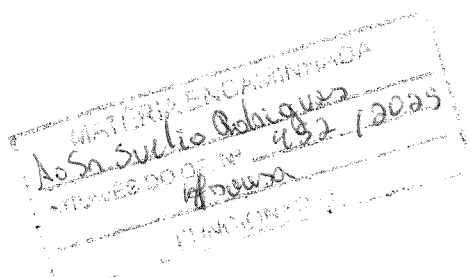 MATÉRIA ENCAMINHADA
Ao Sr. Suélio Rodrigues
ATRAVÉS DO OF. Nº 492 / 2025